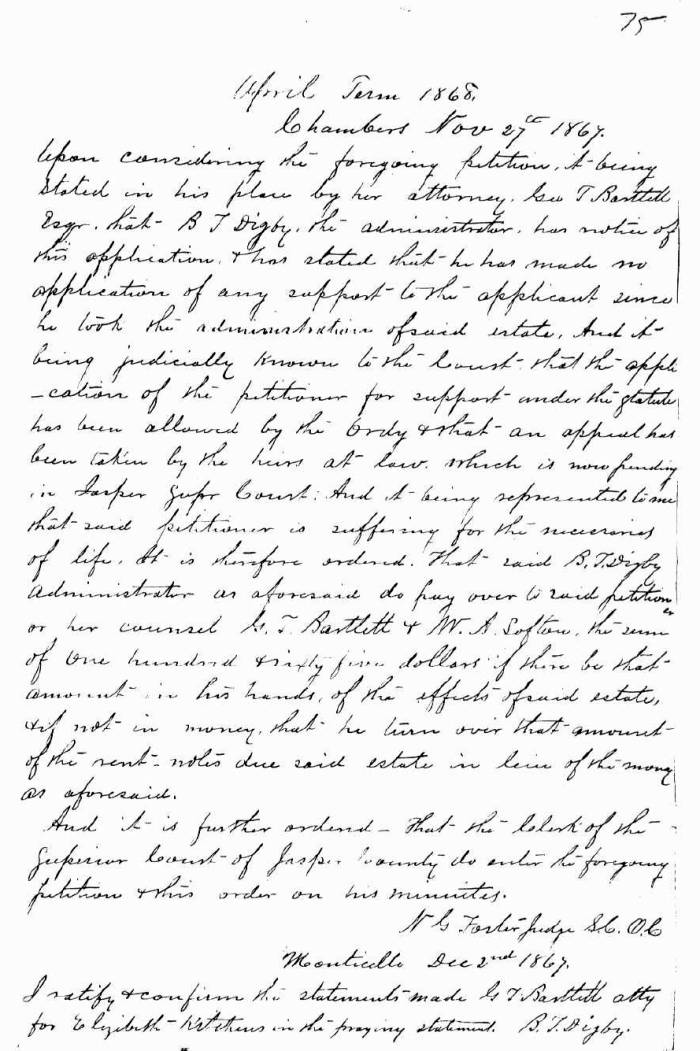 75
April Term 1868.
Chambers Nov 27th 1867.
Upon considering the foregoing petition, it being
stated in his place by her attorney, Geo T Bartlett
Esqr. that B T Digby, the administrator, has notice of
this application, & has stated that he has made no
application of any support to the applicant since
he took the administration of said estate. And it
being judicially known to the Court that the appli
-cation of the petitioner for support under the statute
has been allowed by the Ordy & that an appeal has
been taken by the heirs at law, which is now pending
in Jasper Supr Court: And it being represented to me
that said petitioner is suffering for the necessaries
of life. It is therefore ordered. That said B. T. Digby
Administrator as aforesaid do pay over to said petitioner
or her counsel G. T. Bartlett & W. A. Lofton, the sum
of One hundred & sixty five dollars if there be that
amount in his hands, of the effects of said estate,
& if not in money, that he turn over that amount
of the rent-notes due said estate in lieu of the money
as aforesaid.
And it is further ordered - that the Clerk of the
Superior Court of Jasper County do enter the foregoing
petition & this order on his minutes.
N G Foster Judge S.C. O.C
Monticello Dec 2nd 1867.
I ratify & confirm the statements made G T Bartlett atty
for Elizibeth Kitchens in the praying statement. B. T. Digby.